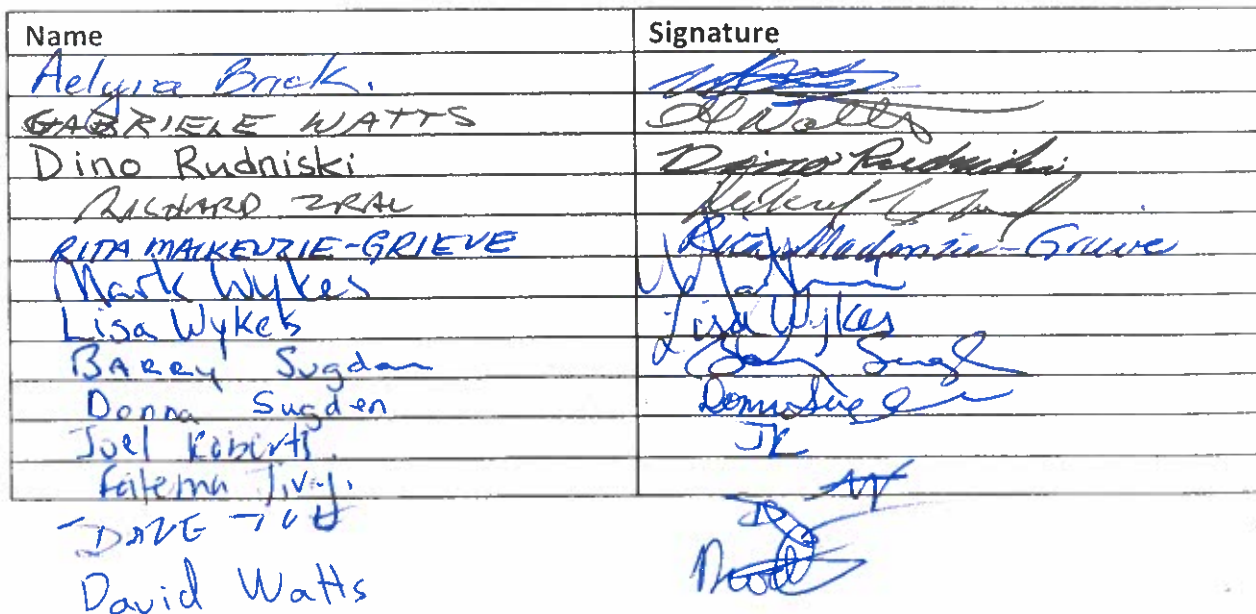 Name Signature
Brick.
GABRIELE WATTS G Watts
Dino Rudniski Dino Rudniski
RICHARD ZRAL
RITA MACKENZIE-GRIEVE Rita Mackenzie-Grieve
Mark Wykes
Lisa Wykes Lisa Wykes
BARRY Sugden
Donna Sugden
Joel Roberts. JR
Fatema
DAVE
David Watts